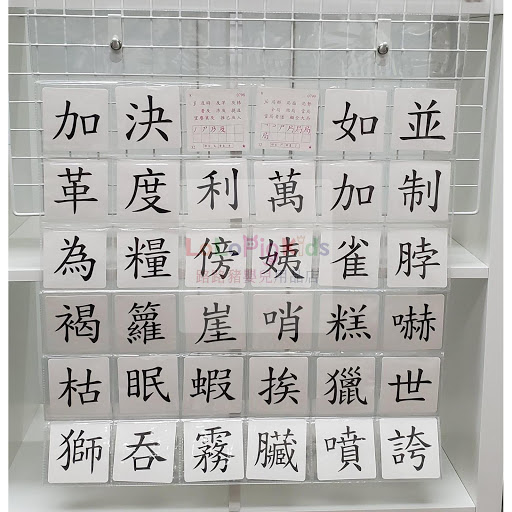 加決如並
革度利萬加制
為糧傍姨雀脖
褐籮崖哨糕嚇
枯眠蝦挨獵世
獅吞霧臟噴誇